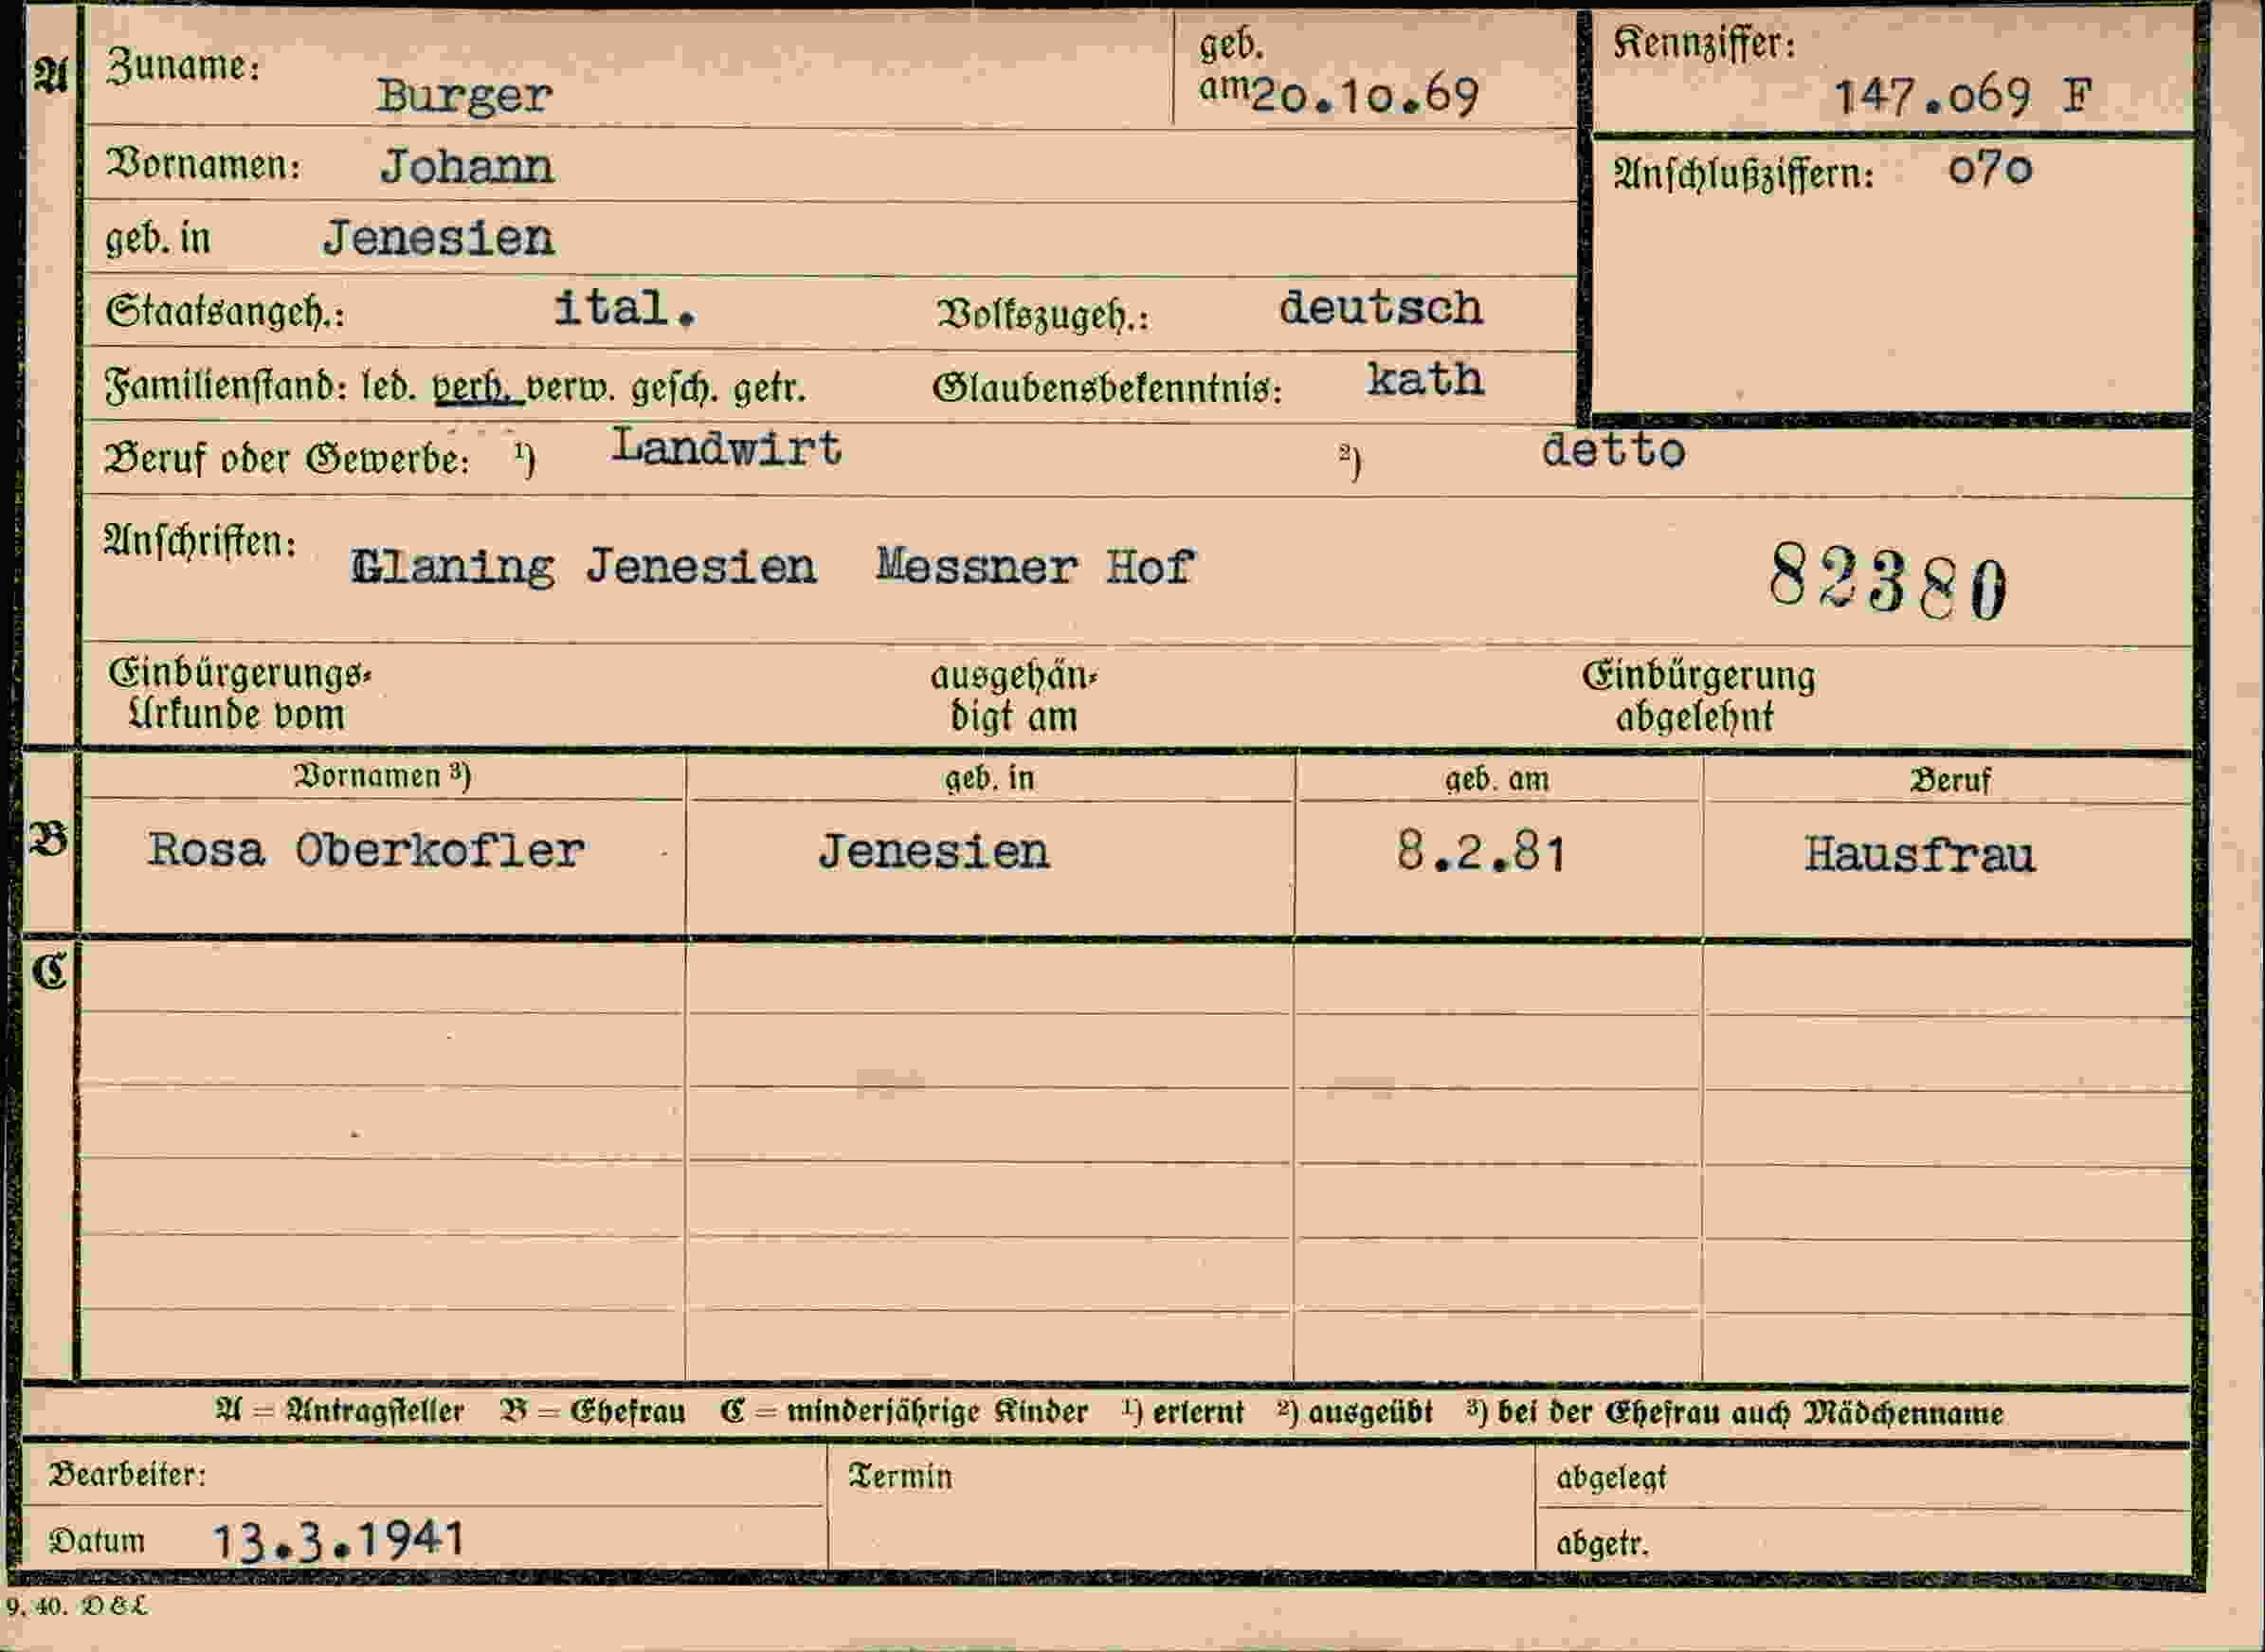 A Zuname: Burger geb. am 20.10.69 Kennziffer: 147.069 F
Vornamen: Johann Anschlußziffern: 070
geb. in Jenesien
Staatsangeh.: ital. Volkszugeh.: deutsch
Familienstand: led. verh. verw. gesch. getr. Glaubensbekenntnis: kath
Beruf oder Gewerbe: ¹) Landwirt ²) detto
Anschriften: Glaning Jenesien Messner Hof 82380
Einbürgerungs- ausgehän- Einbürgerung
Urkunde vom digt am abgelehnt
Vornamen ³) geb. in geb. am Beruf
B Rosa Oberkofler Jenesien 8.2.81 Hausfrau
C
A = Antragsteller B = Ehefrau C = minderjährige Kinder ¹) erlernt ²) ausgeübt ³) bei der Ehefrau auch Mädchenname
Bearbeiter: Termin abgelegt
Datum 13.3.1941 abgetr.
9. 40. D & L